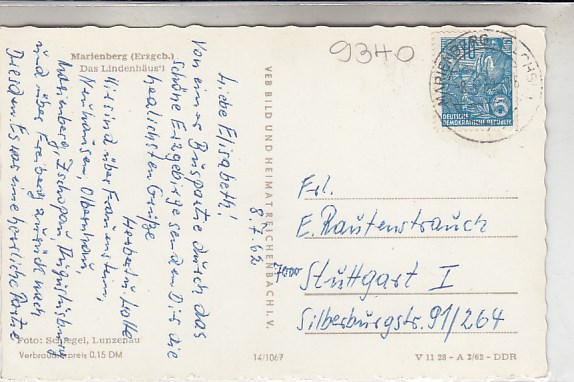 9340
Marienberg (Erzgeb.)
Das Lindenhäus'l
MARIENBERG
10
5
DEUTSCHE
DEMOKRATISCHE REPUBLIK
8.7.62
Liebe Elisabeth!
Von einer Buspartie durch das
schöne Erzgebirge senden Dir die
herzlichsten Grüße
Herbert u. Lotte
Wir sind über Frauenstein,
Neuhausen, Olbernhau,
Marienberg, Zschopau, Augustusburg
und über Freiberg zurück nach
Dresden. Es war eine herrliche Partie
VEB BILD UND HEIMAT REICHENBACH I. V.
Frl.
E. Rautenstrauch
7000 Stuttgart I
Silberburgstr. 91/264
Foto: Schlegel, Lunzenau
Verbraucherpreis 0,15 DM
14/1067
V 11 28 - A 2/62 - DDR